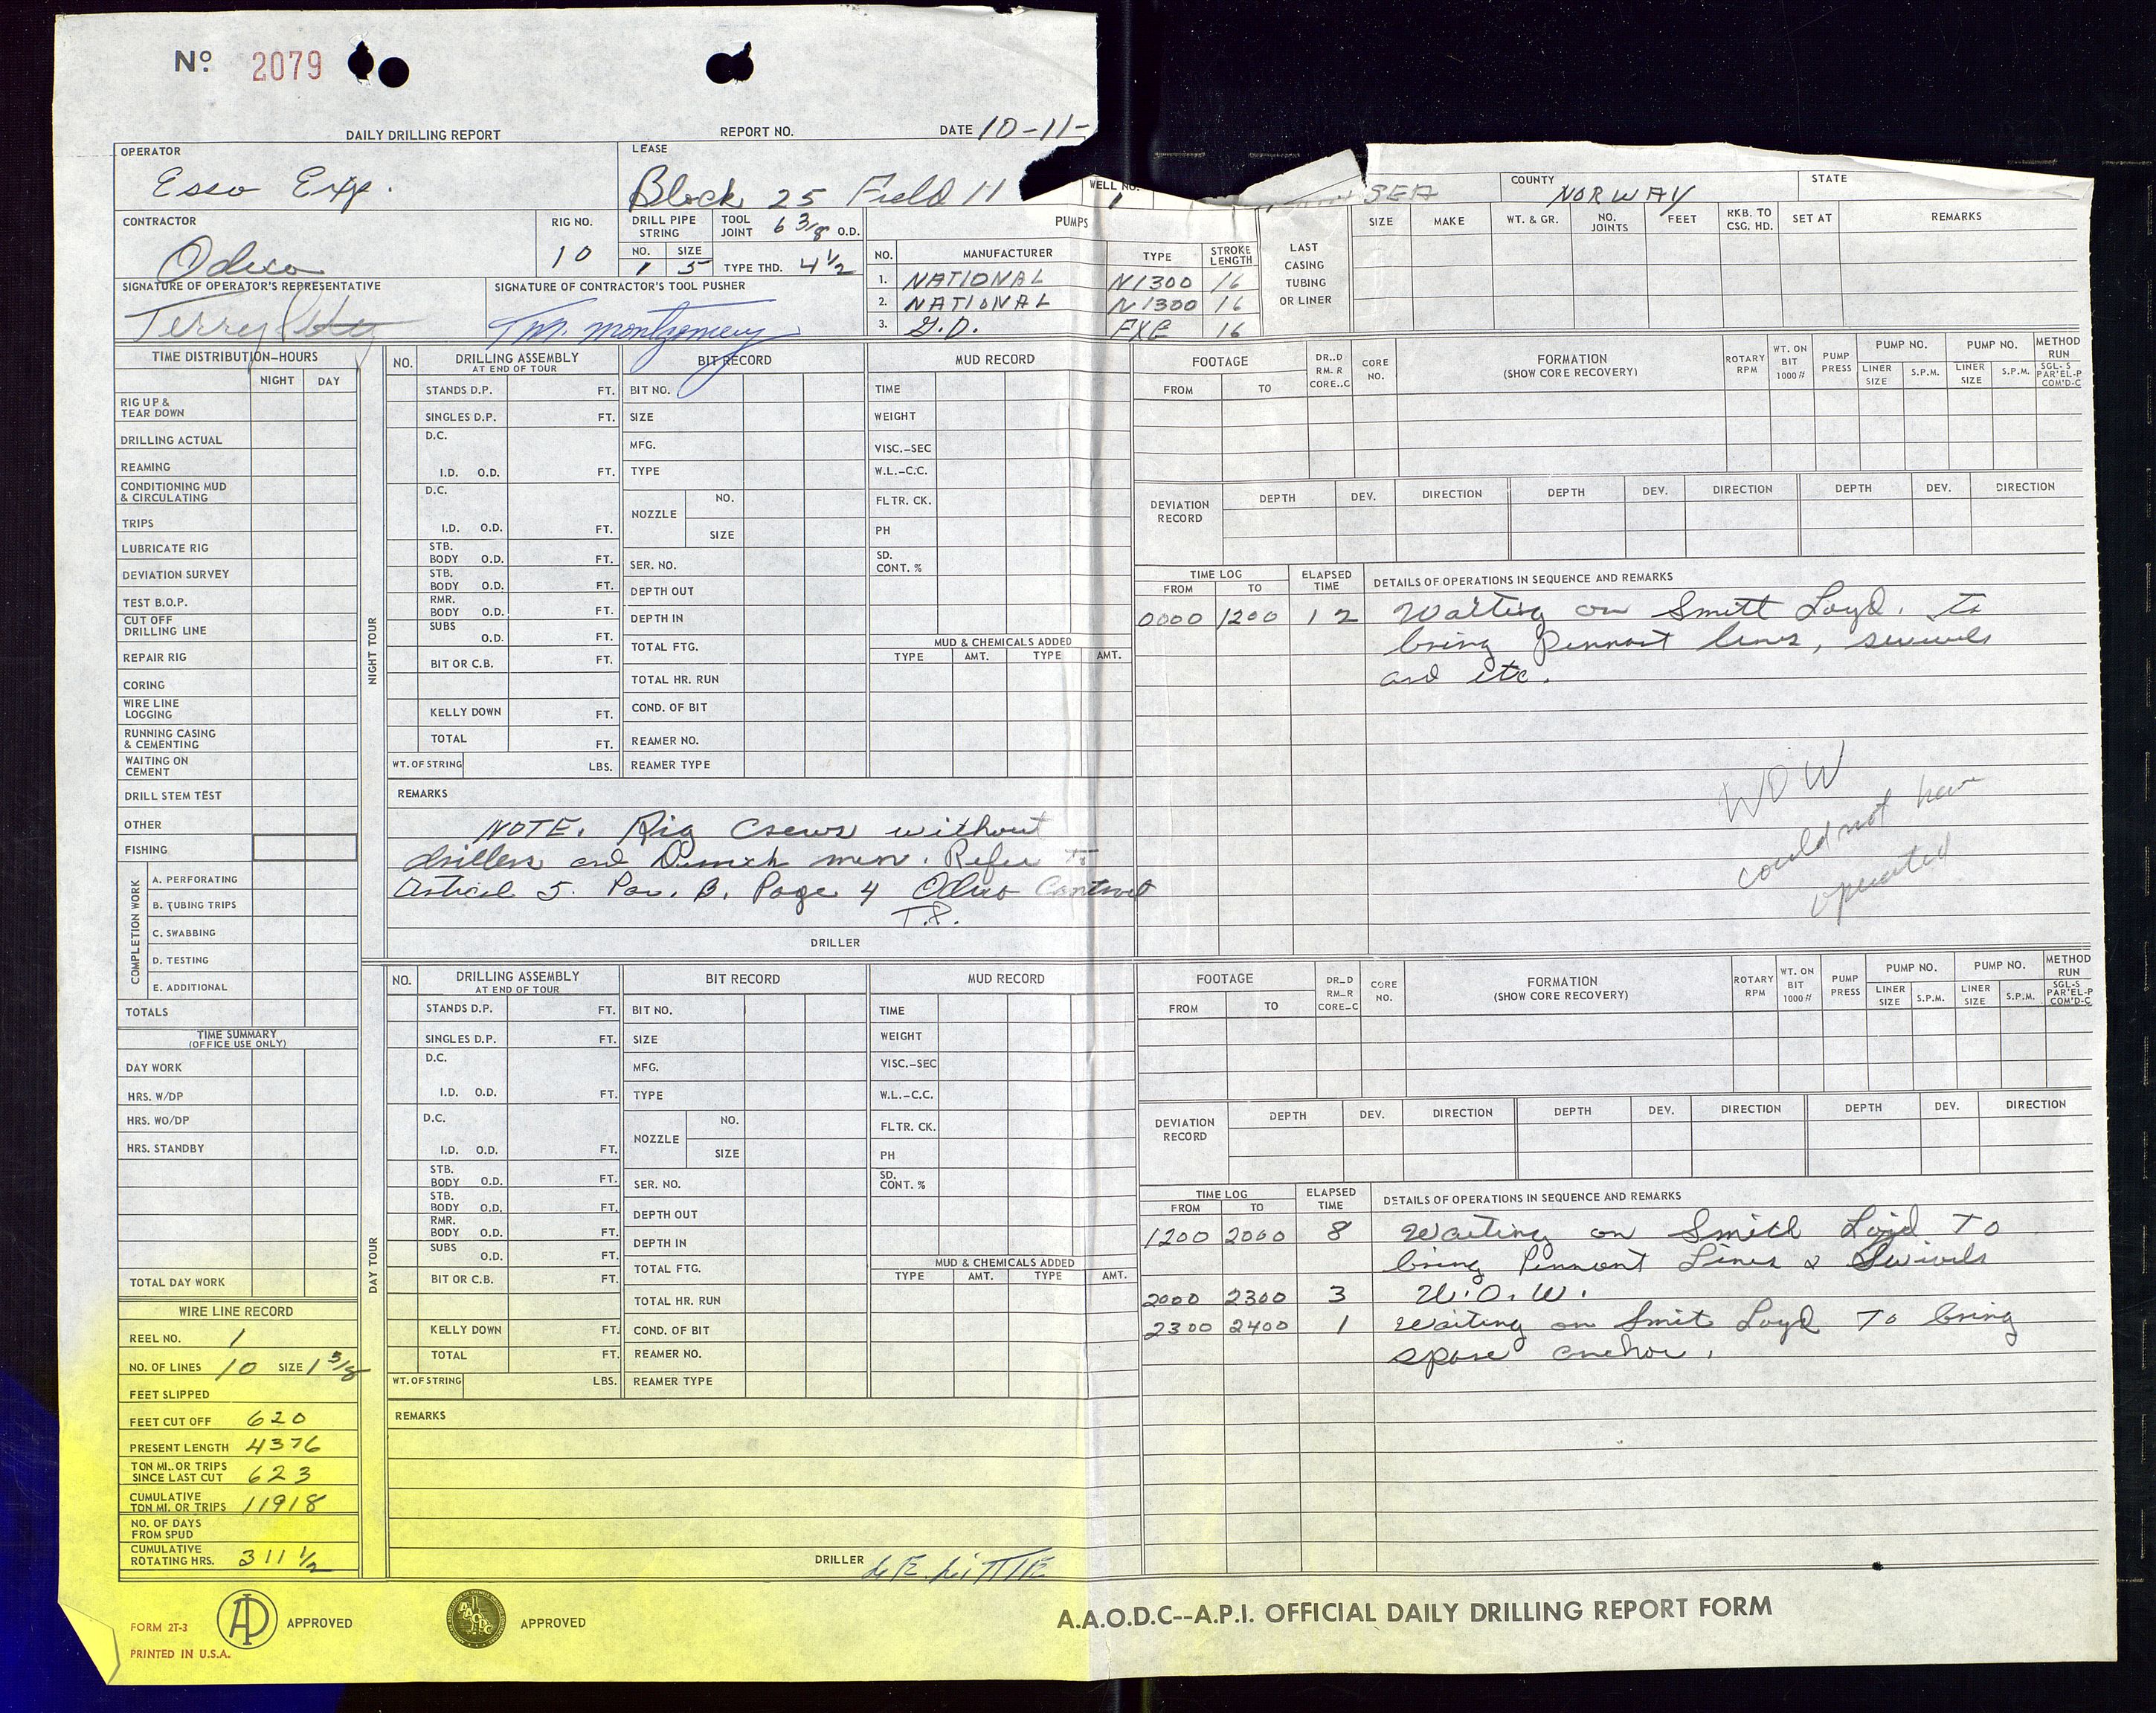 Nº 2079
DAILY DRILLING REPORT REPORT NO. DATE 10-11-
OPERATOR Esso Exp. LEASE Block 25 Field 11 WELL NO. 1 SEA COUNTY NORWAY STATE
CONTRACTOR Odeco RIG NO. 10 DRILL PIPE STRING NO. 1 SIZE 5 TOOL JOINT 6 3/8 O.D. TYPE THD. 4 1/2
PUMPS
NO. MANUFACTURER TYPE STROKE LENGTH
1. NATIONAL N1300 16
2. NATIONAL N1300 16
3. G.D. FXE 16
LAST CASING TUBING OR LINER
SIZE MAKE WT. & GR. NO. JOINTS FEET RKB. TO CSG. HD. SET AT REMARKS
SIGNATURE OF OPERATOR'S REPRESENTATIVE Terry
SIGNATURE OF CONTRACTOR'S TOOL PUSHER T.M. Montgomery
TIME DISTRIBUTION–HOURS
NIGHT DAY
RIG UP & TEAR DOWN
DRILLING ACTUAL
REAMING
CONDITIONING MUD & CIRCULATING
TRIPS
LUBRICATE RIG
DEVIATION SURVEY
TEST B.O.P.
CUT OFF DRILLING LINE
REPAIR RIG
CORING
WIRE LINE LOGGING
RUNNING CASING & CEMENTING
WAITING ON CEMENT
DRILL STEM TEST
OTHER
FISHING
COMPLETION WORK
A. PERFORATING
B. TUBING TRIPS
C. SWABBING
D. TESTING
E. ADDITIONAL
TOTALS
TIME SUMMARY
(OFFICE USE ONLY)
DAY WORK
HRS. W/DP
HRS. WO/DP
HRS. STANDBY
TOTAL DAY WORK
WIRE LINE RECORD
REEL NO. 1
NO. OF LINES 10 SIZE 1 3/8
FEET SLIPPED
FEET CUT OFF 620
PRESENT LENGTH 4376
TON MI. OR TRIPS SINCE LAST CUT 623
CUMULATIVE TON MI. OR TRIPS 11918
NO. OF DAYS FROM SPUD
CUMULATIVE ROTATING HRS. 311 1/2
NIGHT TOUR
NO. DRILLING ASSEMBLY
AT END OF TOUR
STANDS D.P. FT.
SINGLES D.P. FT.
D.C.
I.D. O.D. FT.
D.C.
I.D. O.D. FT.
STB. BODY O.D. FT.
STB. BODY O.D. FT.
RMR. BODY O.D. FT.
SUBS O.D. FT.
BIT OR C.B. FT.
KELLY DOWN FT.
TOTAL FT.
WT. OF STRING LBS.
BIT RECORD
BIT NO.
SIZE
MFG.
TYPE
NOZZLE NO.
SIZE
SER. NO.
DEPTH OUT
DEPTH IN
TOTAL FTG.
TOTAL HR. RUN
COND. OF BIT
REAMER NO.
REAMER TYPE
MUD RECORD
TIME
WEIGHT
VISC.–SEC
W.L.–C.C.
FLTR. CK.
PH
SD. CONT. %
MUD & CHEMICALS ADDED
TYPE AMT. TYPE AMT.
FOOTAGE
FROM TO
DR..D RM. R CORE..C
CORE NO.
FORMATION
(SHOW CORE RECOVERY)
ROTARY RPM WT. ON BIT 1000# PUMP PRESS PUMP NO. LINER SIZE S.P.M. PUMP NO. LINER SIZE S.P.M. METHOD RUN SGL-S PAR'EL-P COM'D-C
DEVIATION RECORD
DEPTH DEV. DIRECTION DEPTH DEV. DIRECTION DEPTH DEV. DIRECTION
TIME LOG ELAPSED TIME DETAILS OF OPERATIONS IN SEQUENCE AND REMARKS
FROM TO
0000 1200 12 Waiting on Smitt Loyd. to
bring Pennant lines, swivels
and etc.
WOW
could not have
operated
REMARKS
NOTE. Rig Crews without
drillers and Derrick men. Refer to
Artical 5. Par. B. Page 4 Odeco Contract
T.P.
DRILLER
DAY TOUR
NO. DRILLING ASSEMBLY
AT END OF TOUR
STANDS D.P. FT.
SINGLES D.P. FT.
D.C.
I.D. O.D. FT.
D.C.
I.D. O.D. FT.
STB. BODY O.D. FT.
STB. BODY O.D. FT.
RMR. BODY O.D. FT.
SUBS O.D. FT.
BIT OR C.B. FT.
KELLY DOWN FT.
TOTAL FT.
WT. OF STRING LBS.
BIT RECORD
BIT NO.
SIZE
MFG.
TYPE
NOZZLE NO.
SIZE
SER. NO.
DEPTH OUT
DEPTH IN
TOTAL FTG.
TOTAL HR. RUN
COND. OF BIT
REAMER NO.
REAMER TYPE
MUD RECORD
TIME
WEIGHT
VISC.–SEC
W.L.–C.C.
FLTR. CK.
PH
SD. CONT. %
MUD & CHEMICALS ADDED
TYPE AMT. TYPE AMT.
FOOTAGE
FROM TO
DR...D RM--R CORE--C
CORE NO.
FORMATION
(SHOW CORE RECOVERY)
ROTARY RPM WT. ON BIT 1000# PUMP PRESS PUMP NO. LINER SIZE S.P.M. PUMP NO. LINER SIZE S.P.M. METHOD RUN SGL-S PAR'EL-P COM'D-C
DEVIATION RECORD
DEPTH DEV. DIRECTION DEPTH DEV. DIRECTION DEPTH DEV. DIRECTION
TIME LOG ELAPSED TIME DETAILS OF OPERATIONS IN SEQUENCE AND REMARKS
FROM TO
1200 2000 8 Waiting on Smith Lojd To
bring Pennont Lines & Swivels
2000 2300 3 W.O.W.
2300 2400 1 Waiting on Smit Loyd To bring
spare anchor.
REMARKS
DRILLER L.E. LITTLE
FORM 2T-3
PRINTED IN U.S.A.
API APPROVED
APPROVED
A.A.O.D.C--A.P.I. OFFICIAL DAILY DRILLING REPORT FORM